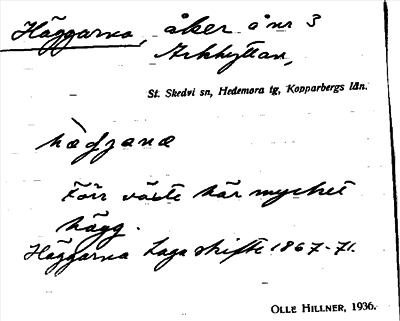 Häggarna, åker å nr 3
Arkhyttan,
St. Skedvi sn, Hedemora tg, Kopparbergs län.
Förr växte här mycket
hägg.
Häggarna Laga skifte 1867-71.
OLLE HILLNER, 1936.